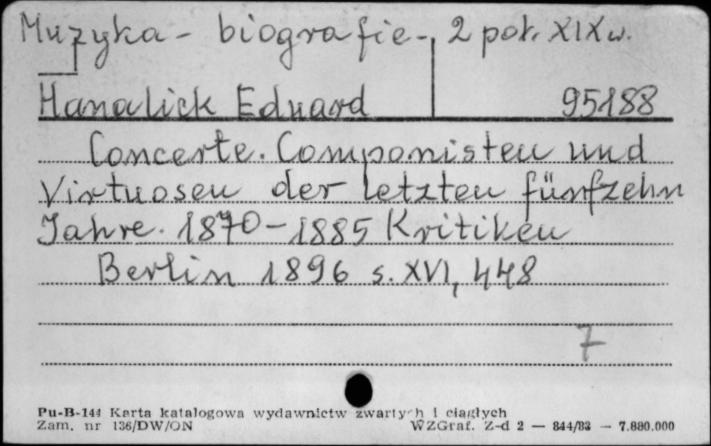 Muzyka - biografie-, 2 poł. XIX w.
Hanalick Eduard 95188
Concerte. Componisten und
Virtuosen der letzten fünfzehn
Jahre. 1870-1885 Kritiken
Berlin 1896 s. XVI, 448
7
Pu-B-144 Karta katalogowa wydawnictw zwartych i ciągłych
Zam. nr 136/DW/ON WZGraf. Z-d 2 — 844/83 — 7.880.000